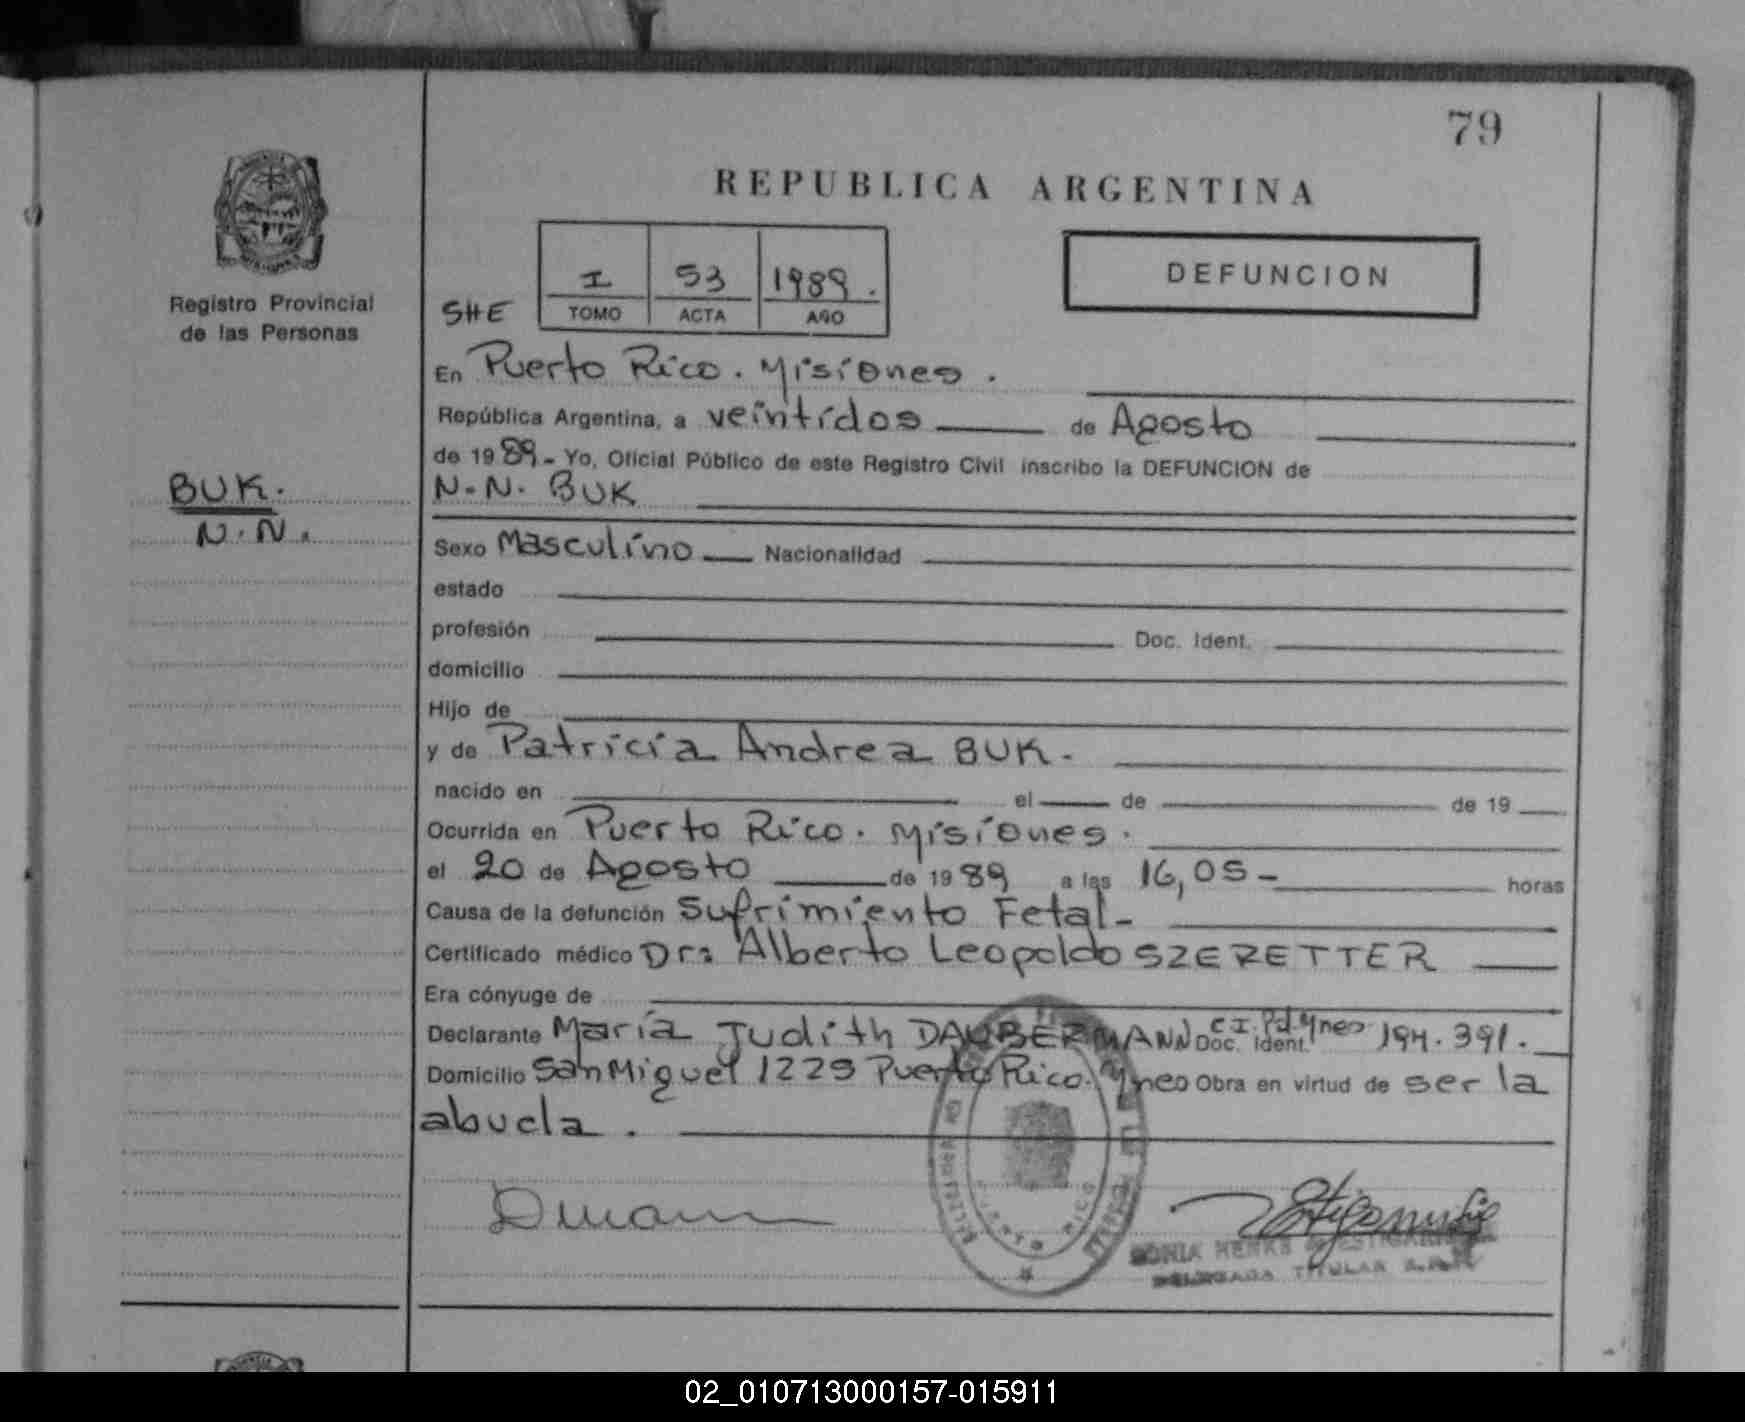 79
REPUBLICA ARGENTINA
Registro Provincial
de las Personas
I 53 1989.
TOMO ACTA AÑO
DEFUNCION
SHE
En Puerto Rico. Misiones.
República Argentina, a veintidos de Agosto
de 1989.- Yo, Oficial Público de este Registro Civil inscribo la DEFUNCION de
BUK.
N.N.
N.N. BUK
Sexo Masculino Nacionalidad
estado
profesión Doc. Ident.
domicilio
Hijo de
y de Patricia Andrea BUK.
nacido en el de de 19
Ocurrida en Puerto Rico. Misiones.
el 20 de Agosto de 1989 a las 16,05- horas
Causa de la defunción Sufrimiento Fetal-
Certificado médico Dr: Alberto Leopoldo SZERETTER
Era cónyuge de
Declarante María Judith DAUBERMANN Doc. Ident. C.I. Pd. Mnes 194.391.
Domicilio San Miguel 1229 Puerto Rico. Mnes Obra en virtud de ser la
abuela.
PUERTO RICO
SONIA HENKE
DELEGADA TITULAR
02_010713000157-015911